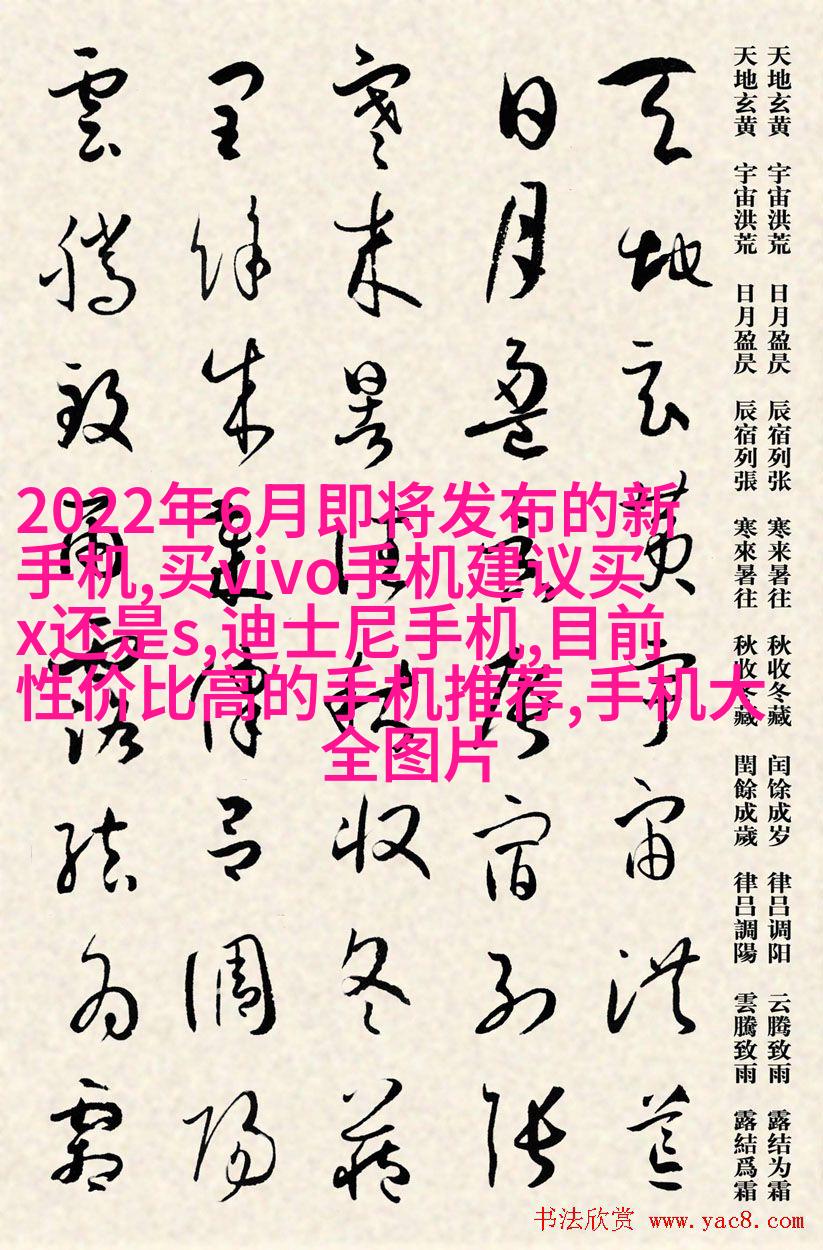 天地玄黄 宇宙洪荒 日月盈昃 辰宿列张 寒来暑往 秋收冬藏 闰馀成岁 律吕调阳 云腾致雨 露结为霜
天地玄黄 宇宙洪荒 日月盈昃 辰宿列張 寒來暑往 秋收冬藏 閏餘成歲 律吕調陽 雲騰致雨 露結爲霜
天地玄黄宇宙洪荒
日月盈昃辰宿列张
寒来暑往秋收冬藏
闰馀成岁律吕调阳
雲腾致雨露结为霜
2022年6月即将发布的新
手机,买vivo手机建议买
x还是s,迪士尼手机,目前
性价比高的手机推荐,手机大
全图片
书法欣赏 www.yac8.com